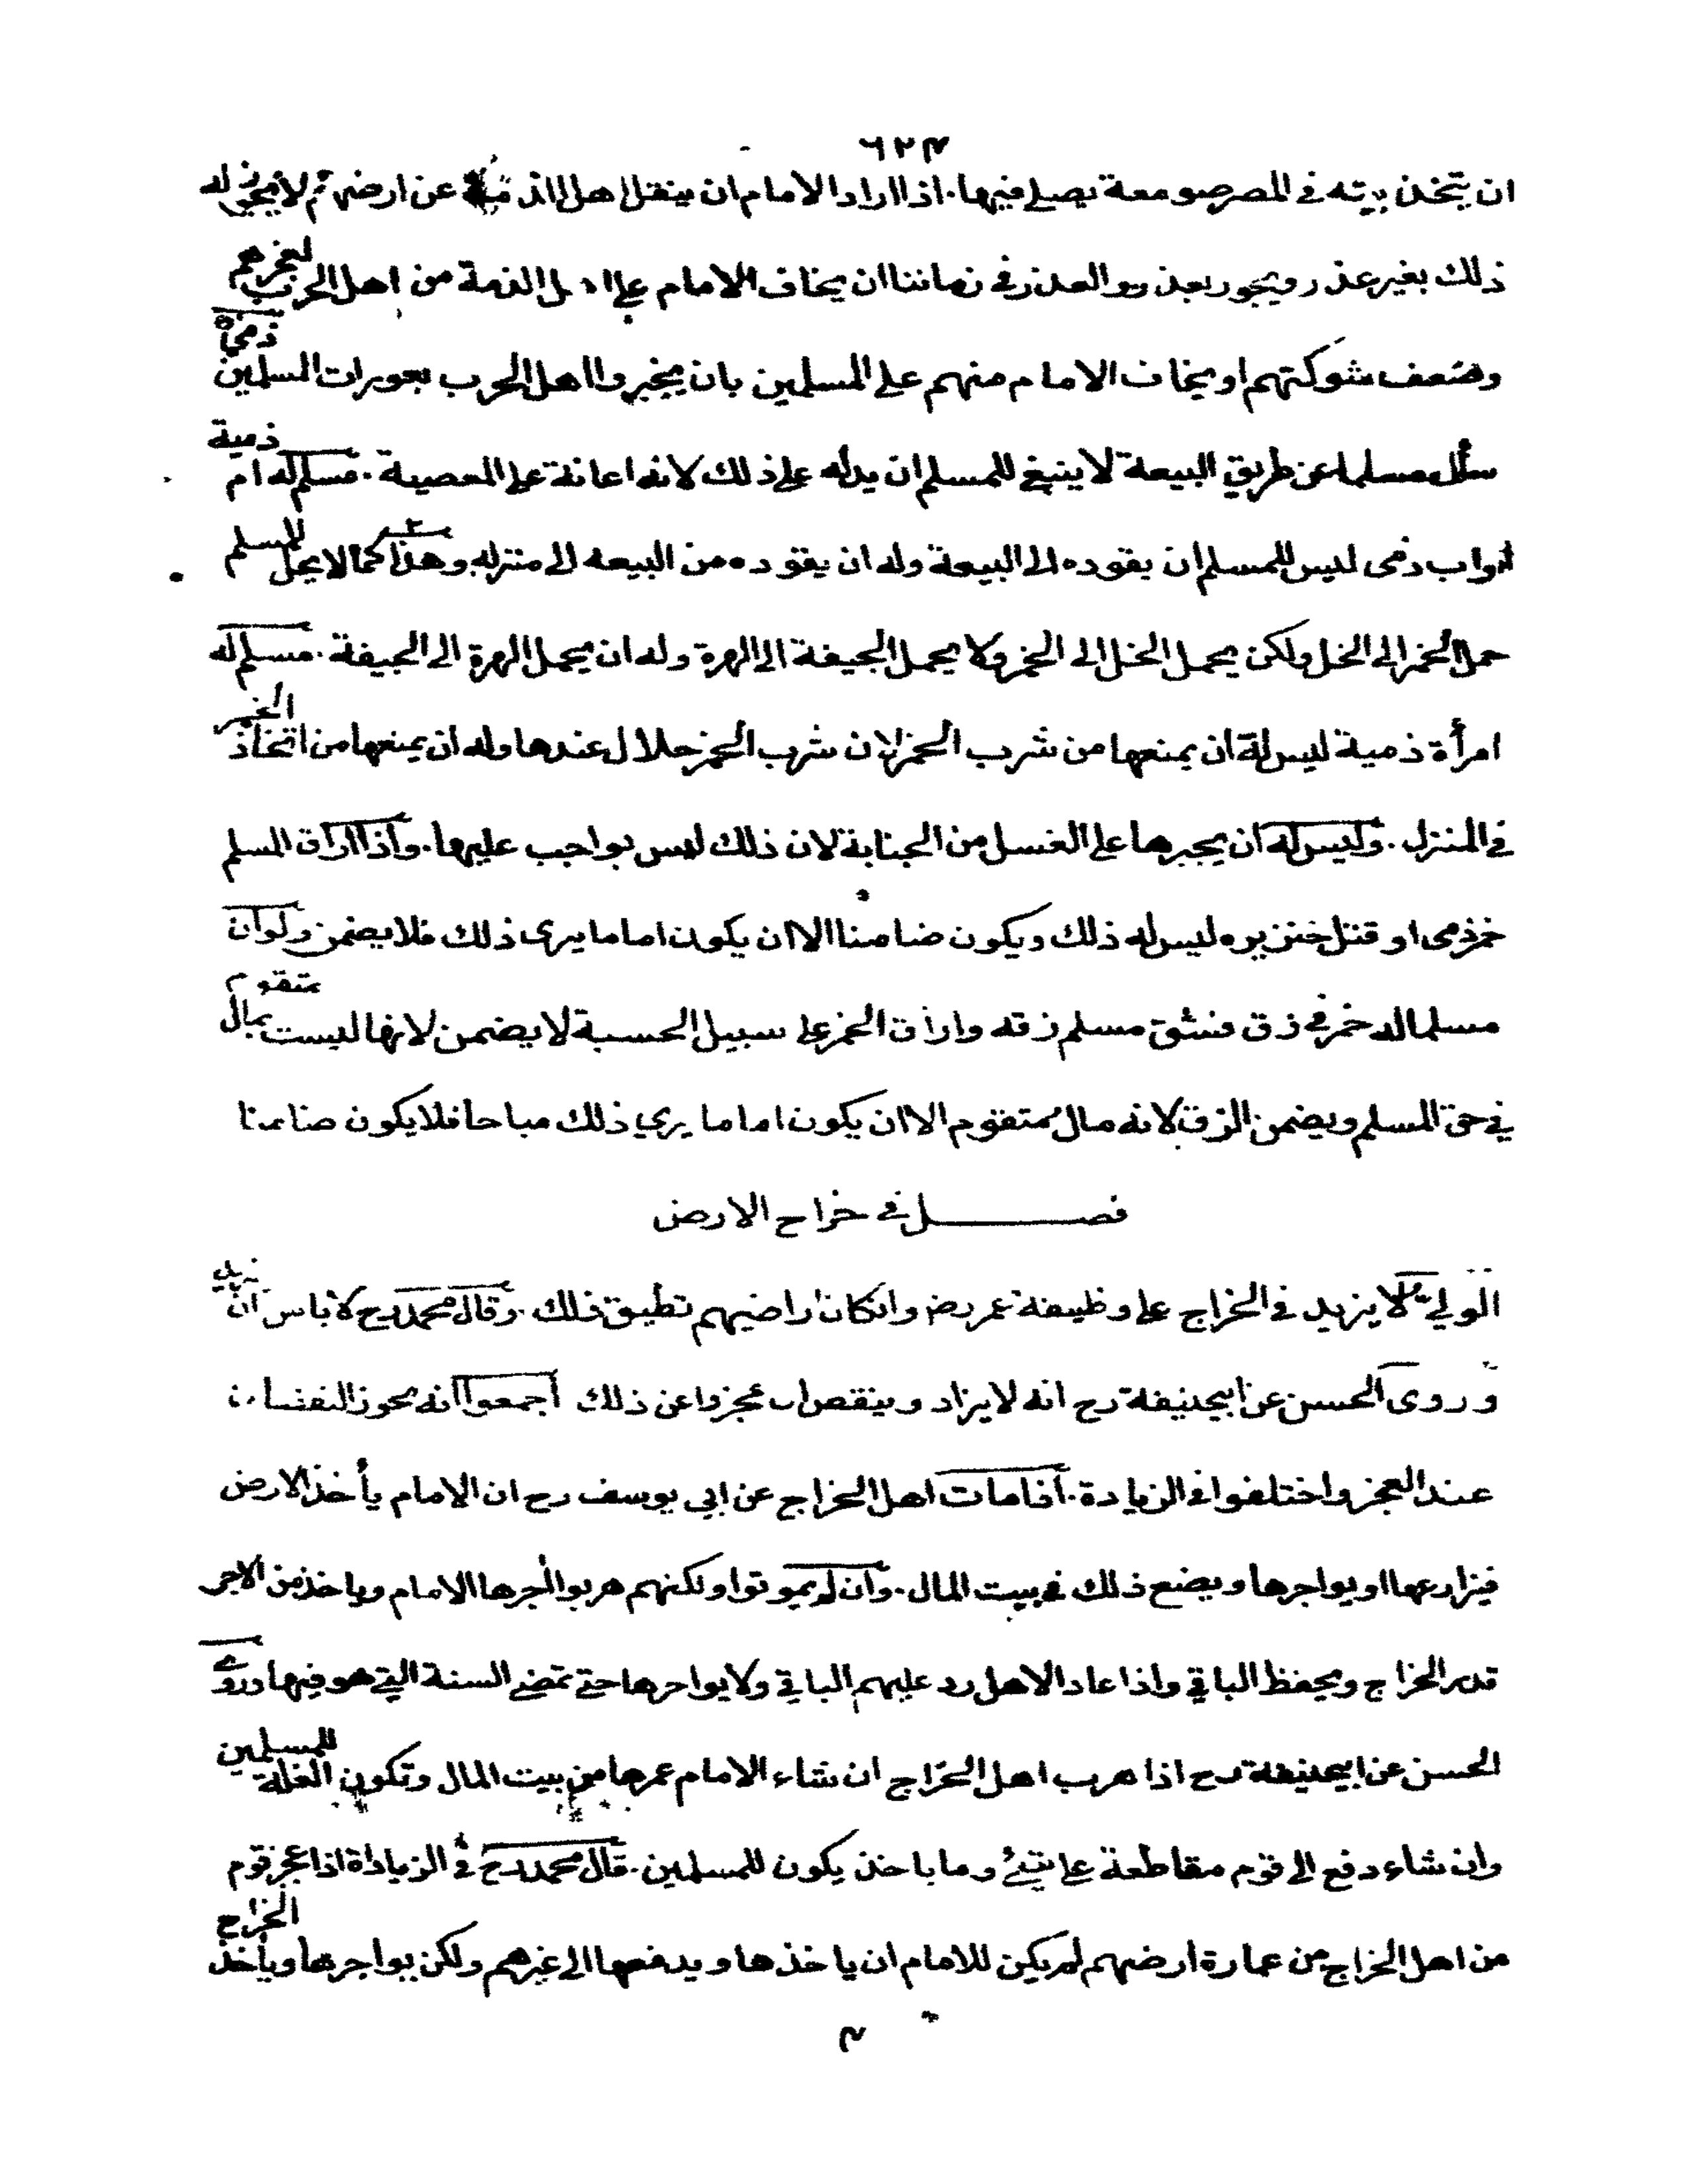 ٦٢٣
ان يتخذ بيته في المصر صومعة يصلي فيها. اذا اراد الامام ان ينقل اهل الذمة عن ارضهم لا يجوز له
ذلك بغير عذر ويجوز بعذر والعذر في زماننا ان يخاف الامام على اهل الذمة من اهل الحرب لعجزهم
وضعف شوكتهم او يخاف الامام منهم على المسلمين بان يخبروا اهل الحرب بعورات المسلمين ذمي
سأل مسلما عن طريق البيعة لا ينبغي للمسلم ان يدله على ذلك لانه اعانة على المعصية. مسلم له ام ذمية
او اب ذمى ليس للمسلم ان يقوده الى البيعة وله ان يقوده من البيعة الى منزله وهذا كما لا يحل للمسلم
حمل الخمر الى الخل ولكن يحمل الخل الى الخمر ولا يحمل الجيفة الى الهرة وله ان يحمل الهرة الى الجيفة. مسلم له
امرأة ذمية ليس له ان يمنعها من شرب الخمر لان شرب الخمر حلال عندها وله ان يمنعها من اتخاذ الخمر
في المنزل. وليس له ان يجبرها على الغسل من الجنابة لان ذلك ليس بواجب عليها. واذا اراق المسلم
خمر ذمى او قتل خنزيره ليس له ذلك ويكون ضامنا الا ان يكون اماما يرى ذلك فلا يضمن ولو ان
مسلما له خمر في زق فشق مسلم زقه واراق الخمر على سبيل الحسبة لا يضمن لانها ليست بمال متقوم
في حق المسلم ويضمن الزق لانه مال متقوم الا ان يكون اماما يرى ذلك مباحا فلا يكون ضامنا
فصـــــل في خراج الارض
الوالي لا يزيد في الخراج على وظيفة عمر رض وانكان اراضيهم تطيق ذلك. وقال محمد رح لا باس ان يزيد
وروى الحسن عن ابيحنيفة رح انه لا يزاد وينقص ان عجزوا عن ذلك اجمعوا انه يجوز النقصان
عند العجز واختلفوا في الزيادة. اذا مات اهل الخراج عن ابي يوسف رح ان الامام يأخذ الارض
فيزارعها او يواجرها ويضع ذلك في بيت المال. وان لم يموتوا ولكنهم هربوا اجرها الامام وياخذ من الاجر
قدر الخراج ويحفظ الباقي واذا عاد الاهل رد عليهم الباقي ولا يواجرها حتى تمضي السنة التي هو فيها وروى
الحسن عن ابيحنيفة رح اذا هرب اهل الخراج ان شاء الامام عمرها من بيت المال وتكون الغلة للمسلمين
وان شاء دفع الى قوم مقاطعة على شئ وما ياخذ يكون للمسلمين. قال محمد رح في الزيادة اذا عجز قوم
من اهل الخراج من عمارة ارضهم لم يكن للامام ان ياخذها ويدفعها الى غيرهم ولكن يواجرها ويأخذ الخراج